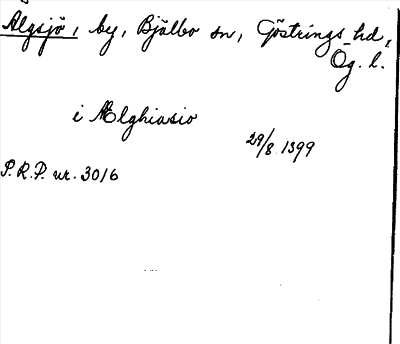 Älgsjö, by, Bjälbo sn, Göstrings hd,
Ög. l.
i Ælghiasio
29/8 1399
P.R.P. nr. 3016